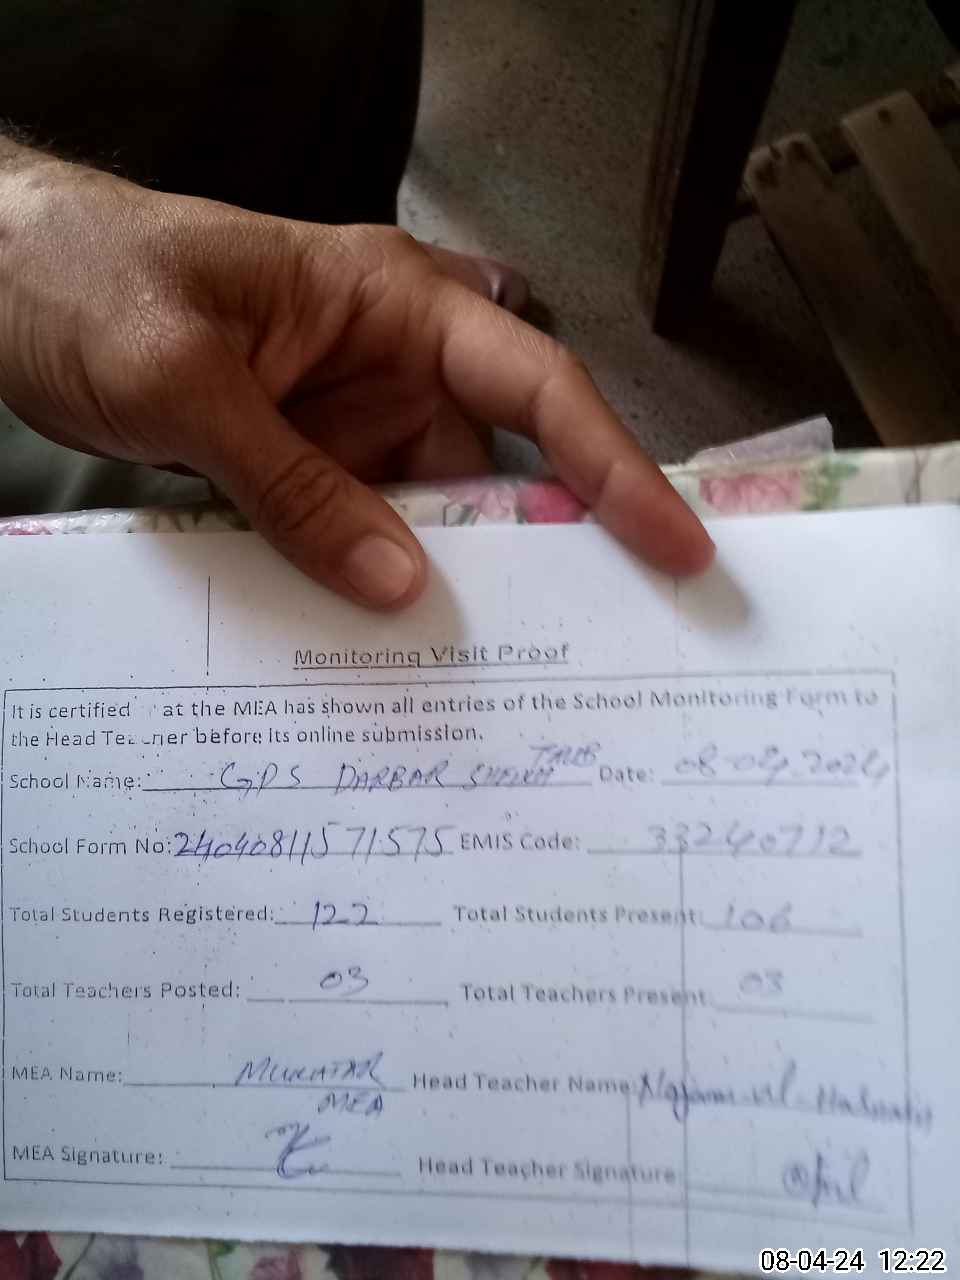 Monitoring Visit Proof
It is certified at the MEA has shown all entries of the School Monitoring Form to
the Head Teacher before its online submission.
School Name: GPS DARBAR SHEIKH TALIB Date: 08-04-2024
School Form No: 2404081157 1575 EMIS Code: 33240712
Total Students Registered: 122 Total Students Present: 106
Total Teachers Posted: 03 Total Teachers Present: 03
MEA Name: MUKHTAR Head Teacher Name: Najam-ul-
MEA
MEA Signature: Head Teacher Signature:
08-04-24 12:22